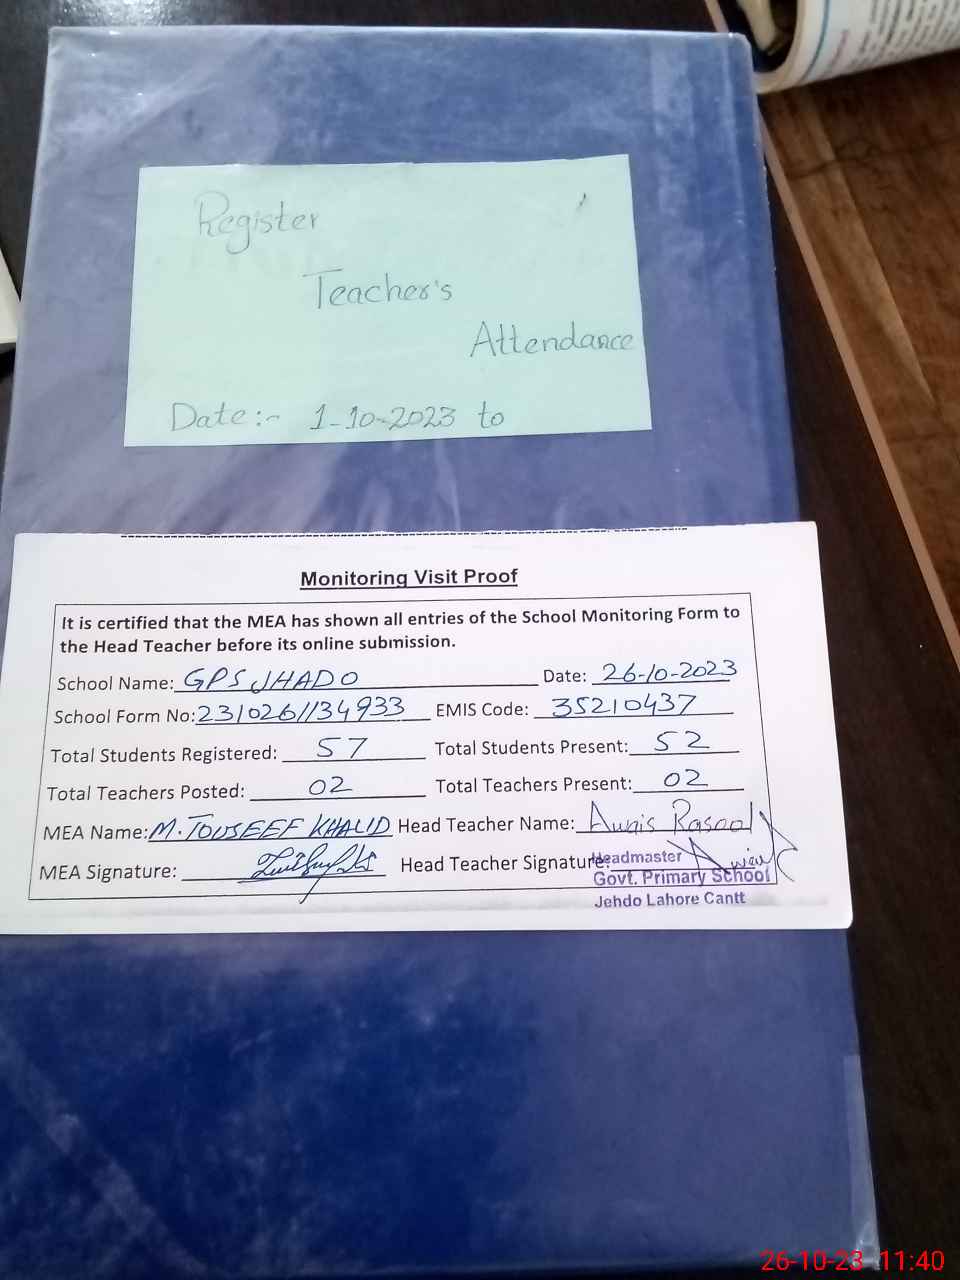 Register
Teacher's
Attendance
Date:- 1-10-2023 to
Monitoring Visit Proof
It is certified that the MEA has shown all entries of the School Monitoring Form to
the Head Teacher before its online submission.
School Name: GPS JHADO Date: 26-10-2023
School Form No: 2310261134933 EMIS Code: 35210437
Total Students Registered: 57 Total Students Present: 52
Total Teachers Posted: 02 Total Teachers Present: 02
MEA Name: M. TOUSEEF KHALID Head Teacher Name: Awais Rasool
MEA Signature: Head Teacher Signature:
Headmaster
Govt. Primary School
Jehdo Lahore Cantt
26-10-23 11:40